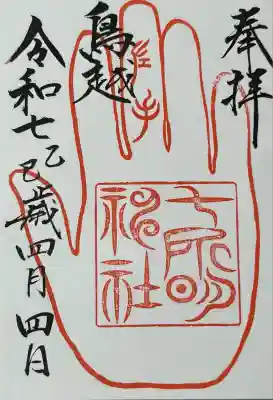 奉拝
鳥越
神社
令和七乙巳歳四月四日